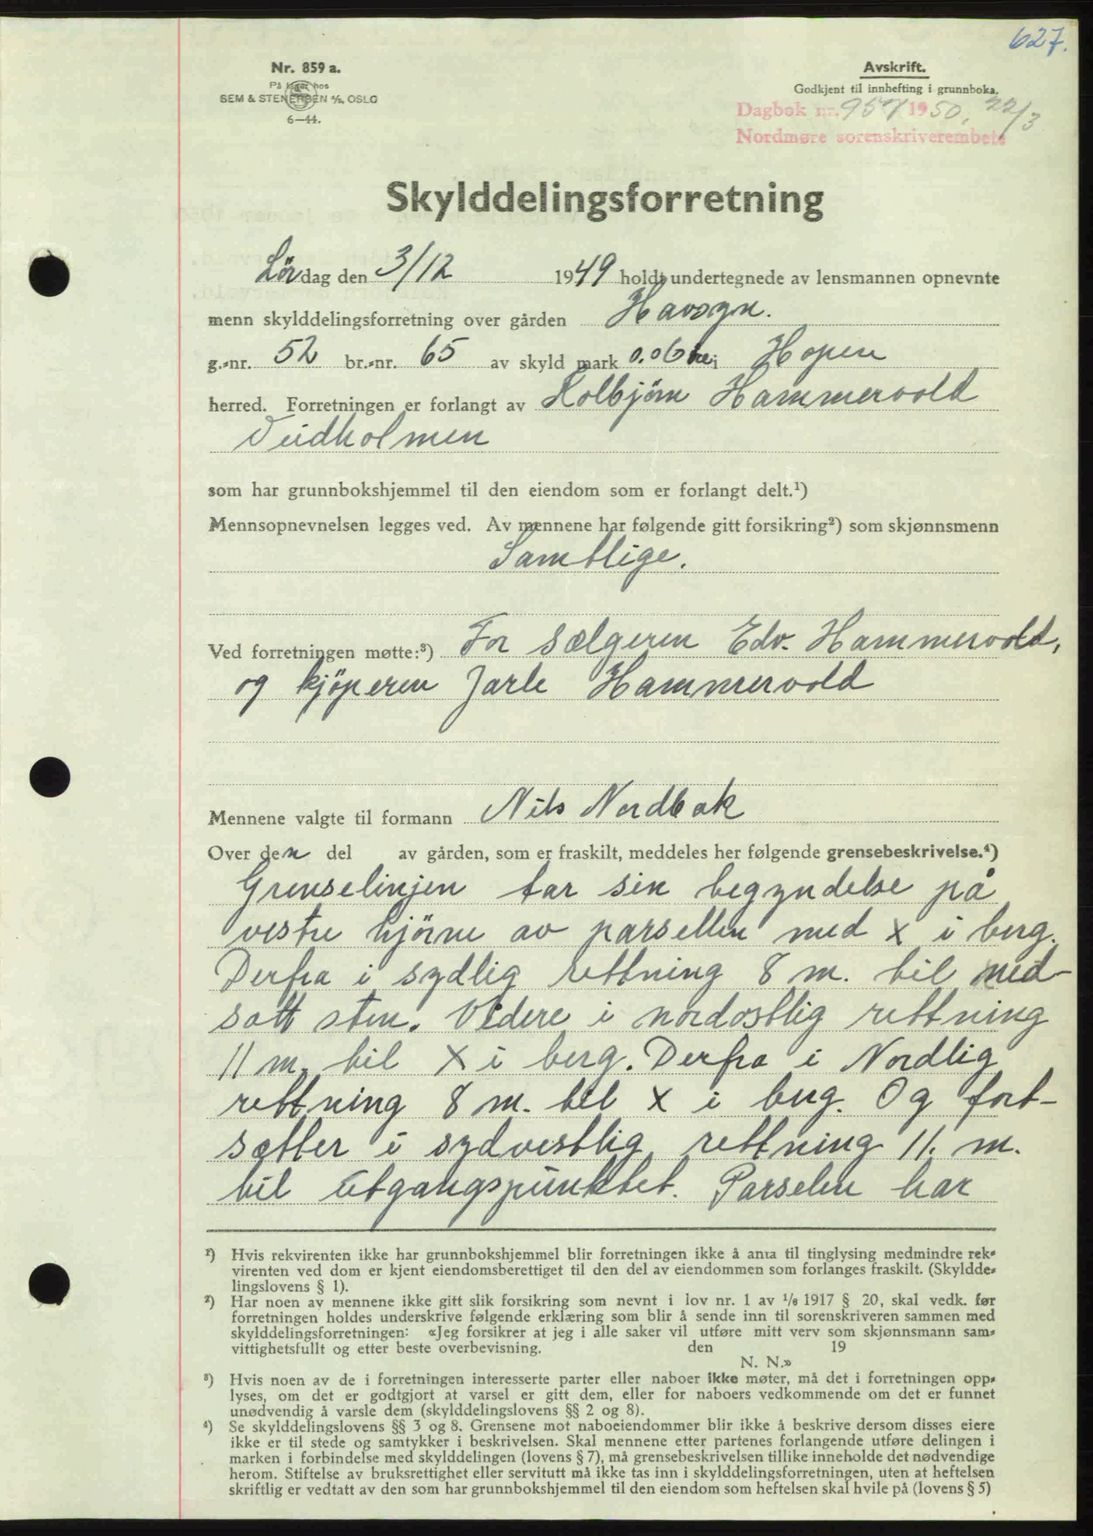 627.
Nr. 859 a.
På lager hos
SEM & STENERSEN A/S, OSLO
6—44.
Avskrift.
Godkjent til innhefting i grunnboka.
Dagbok nr. 957 1950, 22/3
Nordmøre sorenskriverembete
Skylddelingsforretning
Lördag den 3/12 1949 holdt undertegnede av lensmannen opnevnte
menn skylddelingsforretning over gården Havsyn.
g.-nr. 52 br.-nr. 65 av skyld mark 0.06 i Hopen
herred. Forretningen er forlangt av Kolbjörn Hammervold
Veidholmen
som har grunnbokshjemmel til den eiendom som er forlangt delt.¹)
Mennsopnevnelsen legges ved. Av mennene har følgende gitt forsikring²) som skjønnsmenn
Samtlige.
Ved forretningen møtte:³) For sælgeren Edv. Hammervold,
og kjöperen Jarle Hammervold
Mennene valgte til formann Nils Nordbak
Over den del av gården, som er fraskilt, meddeles her følgende grensebeskrivelse.⁴)
Grenselinjen tar sin begyndelse på
vestre hjörne av parsellen med x i berg.
Derfra i sydlig rettning 8 m. til ned-
satt sten. Videre i nordostlig rettning
11 m. til x i berg. Derfra i Nordlig
rettning 8 m. til x i berg. Og fort-
sætter i sydvestlig rettning 11. m.
til Utgangspunktet. Parselen har
¹) Hvis rekvirenten ikke har grunnbokshjemmel blir forretningen ikke å anta til tinglysing medmindre rek-
virenten ved dom er kjent eiendomsberettiget til den del av eiendommen som forlanges fraskilt. (Skyldde-
lingslovens § 1).
²) Har noen av mennene ikke gitt slik forsikring som nevnt i lov nr. 1 av 1/6 1917 § 20, skal vedk. før
forretningen holdes underskrive følgende erklæring som blir å sende inn til sorenskriveren sammen med
skylddelingsforretningen: «Jeg forsikrer at jeg i alle saker vil utføre mitt verv som skjønnsmann sam-
vittighetsfullt og etter beste overbevisning. den 19
N. N.»
³) Hvis noen av de i forretningen interesserte parter eller naboer ikke møter, må det i forretningen opp-
lyses, om det er godtgjort at varsel er gitt dem, eller for naboers vedkommende om det er funnet
unødvendig å varsle dem (skylddelingslovens §§ 2 og 8).
⁴) Se skylddelingslovens §§ 3 og 8. Grensene mot naboeiendommer blir ikke å beskrive dersom disses eiere
ikke er til stede og samtykker i beskrivelsen. Skal mennene etter partenes forlangende utføre delingen i
marken i forbindelse med skylddelingen (lovens § 7), må grensebeskrivelsen tillike inneholde det nødvendige
herom. Stiftelse av bruksrettighet eller servitutt må ikke tas inn i skylddelingsforretningen, uten at heftelsen
skriftlig er vedtatt av den som har grunnbokshjemmel til den eiendom som heftelsen skal hvile på (lovens § 5)